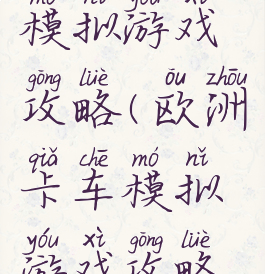 mó nǐ yóu xì
模拟游戏
gōng lüè ōu zhōu
攻略(欧洲
qiǎ chē mó nǐ
卡车模拟
yóu xì gōng lüè
游戏攻略